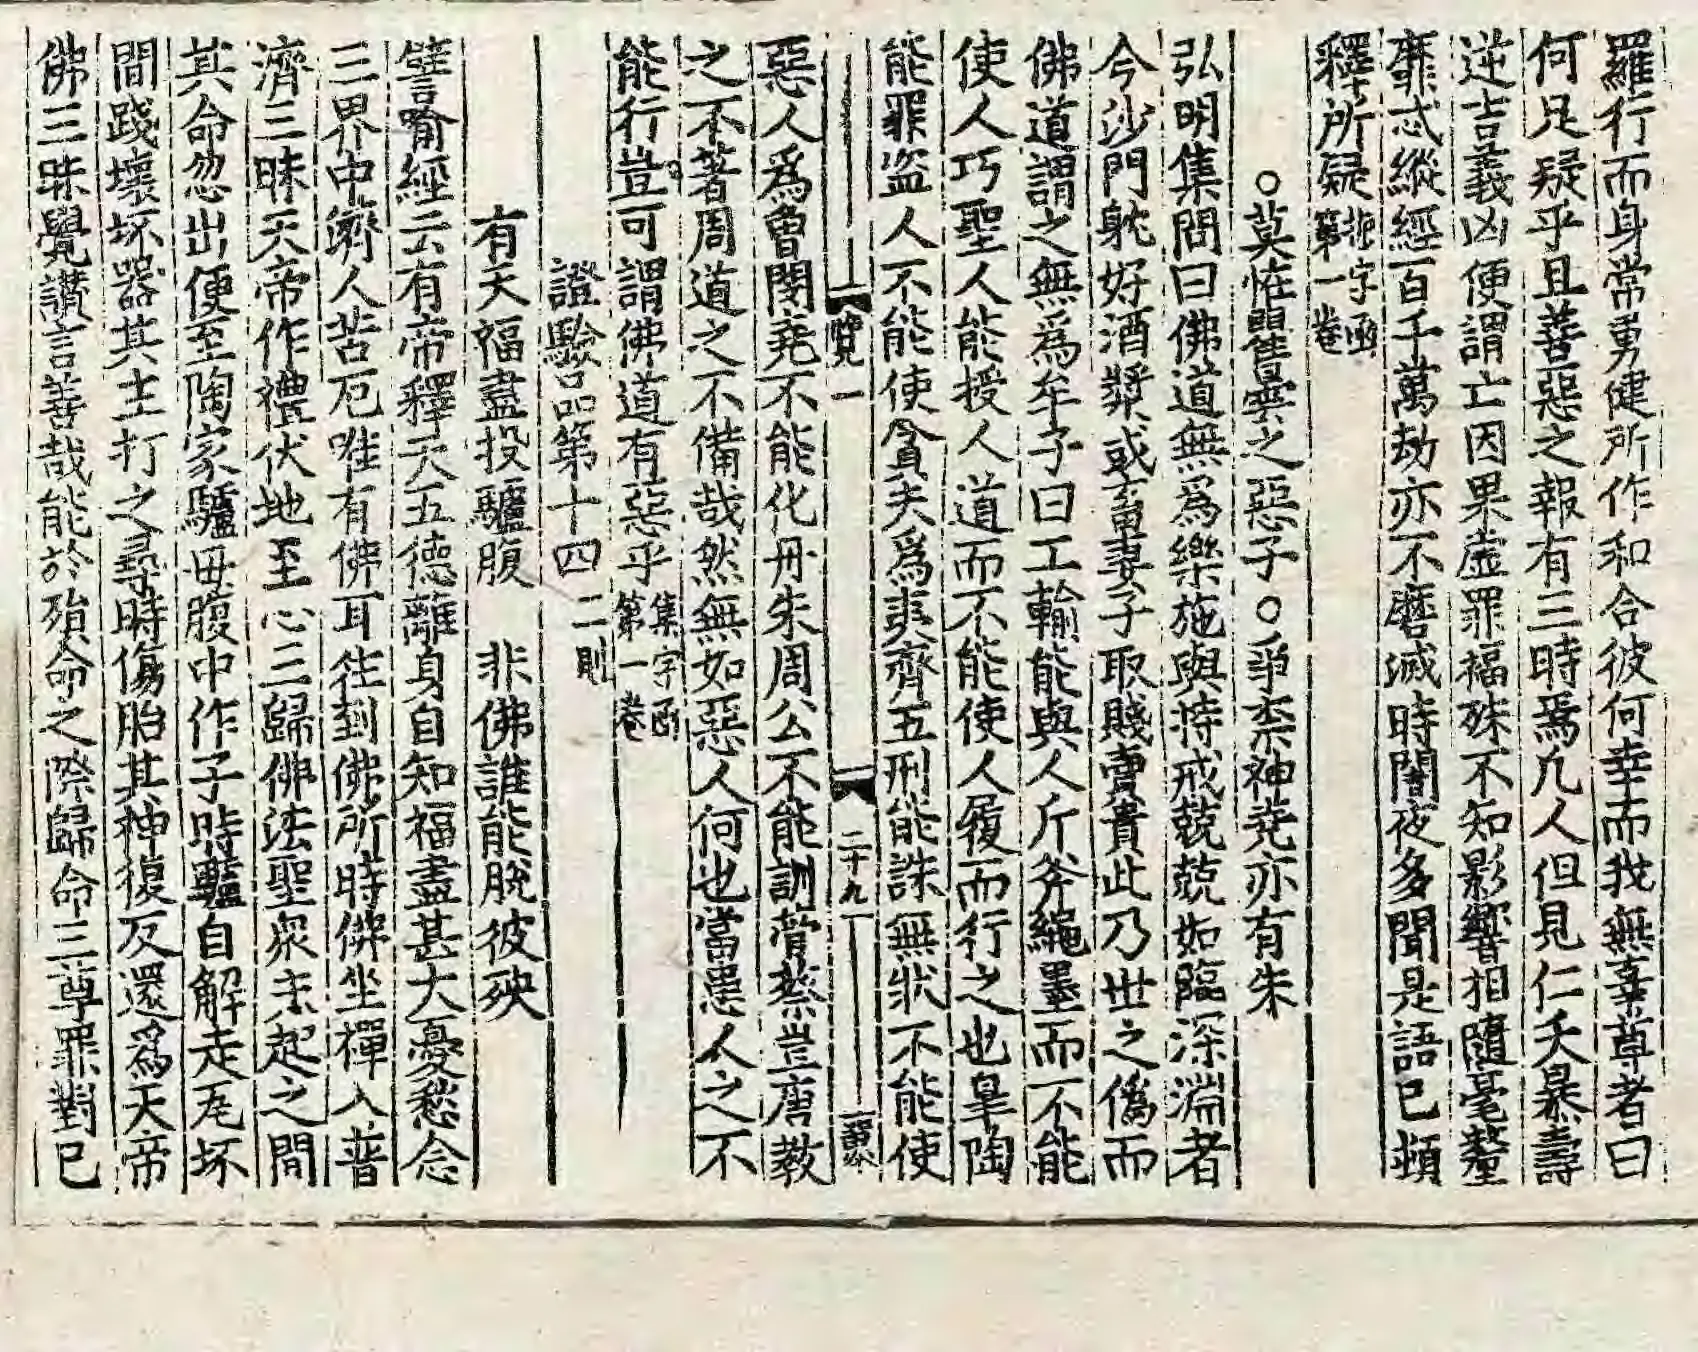 羅行而身常勇健所作和合彼何幸而我無辜尊者曰
何足疑乎且善惡之報有三時焉凡人但見仁夭暴壽
逆吉義凶便謂亡因果虛罪福殊不知影響相隨毫釐
靡忒縱經百千萬劫亦不磨滅時闍夜多聞是語已頓
釋所疑 字函第一卷
○莫恠瞿曇之惡子○爭柰神堯亦有朱
弘明集問曰佛道無爲樂施與持戒兢兢如臨深淵者
今沙門躭好酒漿或畜妻子取賤賣貴此乃世之僞而
佛道謂之無爲牟子曰工輸能與人斤斧繩墨而不能
使人巧聖人能授人道而不能使人履而行之也皐陶
能罪盜人不能使貪夫爲夷齊五刑能誅無狀不能使
覽一 二十九
惡人爲曾閔堯不能化丹朱周公不能訓管蔡豈唐教
之不著周道之不備哉然無如惡人何也當惡人之不
能行豈可謂佛道有惡乎 集字函第一卷
證驗品第十四 二則
有天福盡投驢腹 非佛誰能脫彼殃
譬喻經云有帝釋天五德離身自知福盡甚大憂愁念
三界中濟人苦厄唯有佛耳往到佛所時佛坐禪入普
濟三昧天帝作禮伏地至心三歸佛法聖衆未起之間
其命忽出便至陶家驢母腹中作子時驢自解走瓦坏
間踐壞坏器其主打之尋時傷胎其神復反還爲天帝
佛三昧覺讚言善哉能於殞命之際歸命三尊罪對已